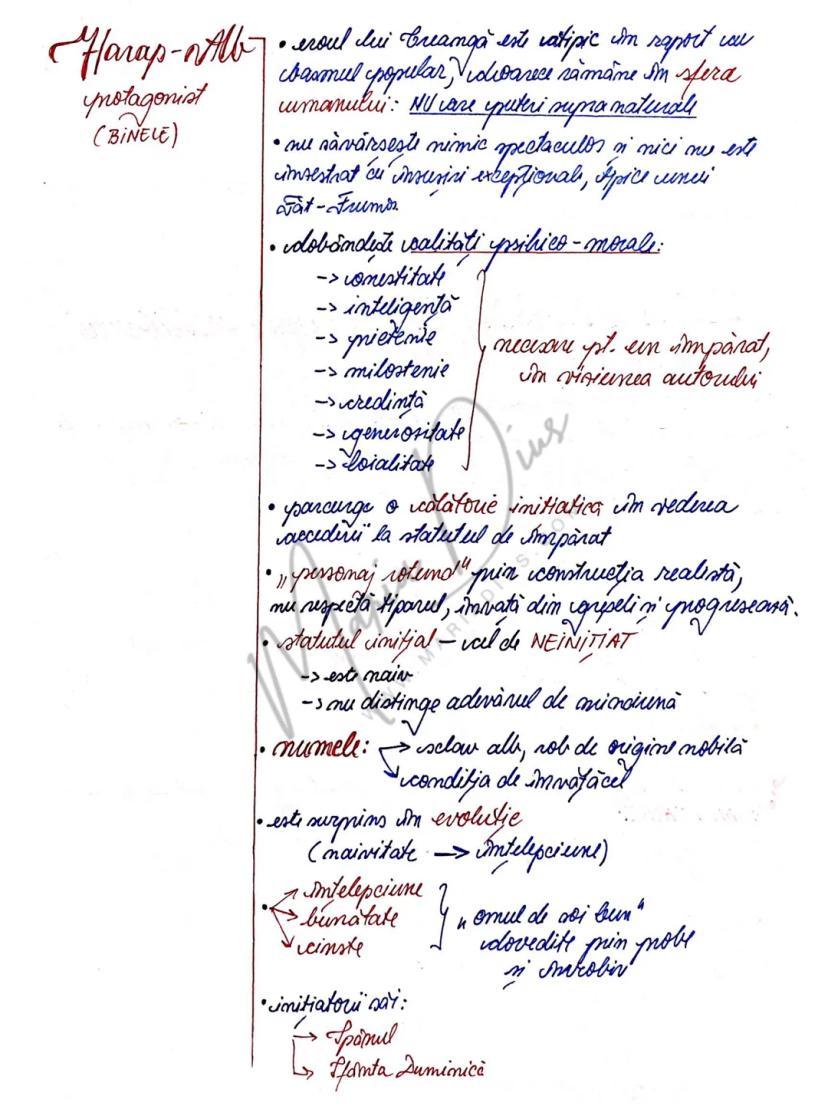 Harap-Alb
protagonist
(BINELE)
• eroul lui Creangă este atipic în raport cu
basmul popular, deoarece rămâne în sfera
umanului: NU are puteri supranaturale
• nu săvârșește nimic spectaculos și nici nu este
înzestrat cu însușiri excepționale, tipice unui
Făt-Frumos
• dobândește calități psihico-morale:
-> onestitate
-> inteligență
-> prietenie
-> milostenie
-> credință
-> generozitate
-> loialitate
necesare pt. un împărat,
în viziunea autorului
• parcurge o călătorie inițiatică în vederea
accederii la statutul de împărat
• „personaj rotund” prin construcția realistă,
nu respectă tiparul, învață din greșeli și progresează.
• statutul inițial – cel de NEINIȚIAT
-> este naiv
-> nu distinge adevărul de minciună
• numele: -> sclav alb, rob de origine nobilă
-> condiția de învățăcel
• este surprins în evoluție
(naivitate -> înțelepciune)
• -> înțelepciune
-> bunătate
-> cinste
„omul de soi bun”
dovedite prin probe
și înrobire
• inițiatorii săi:
-> Spânul
-> Sfânta Duminică
Marius Dius